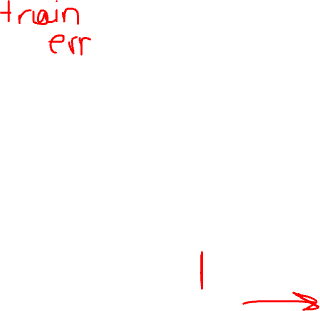 train
err